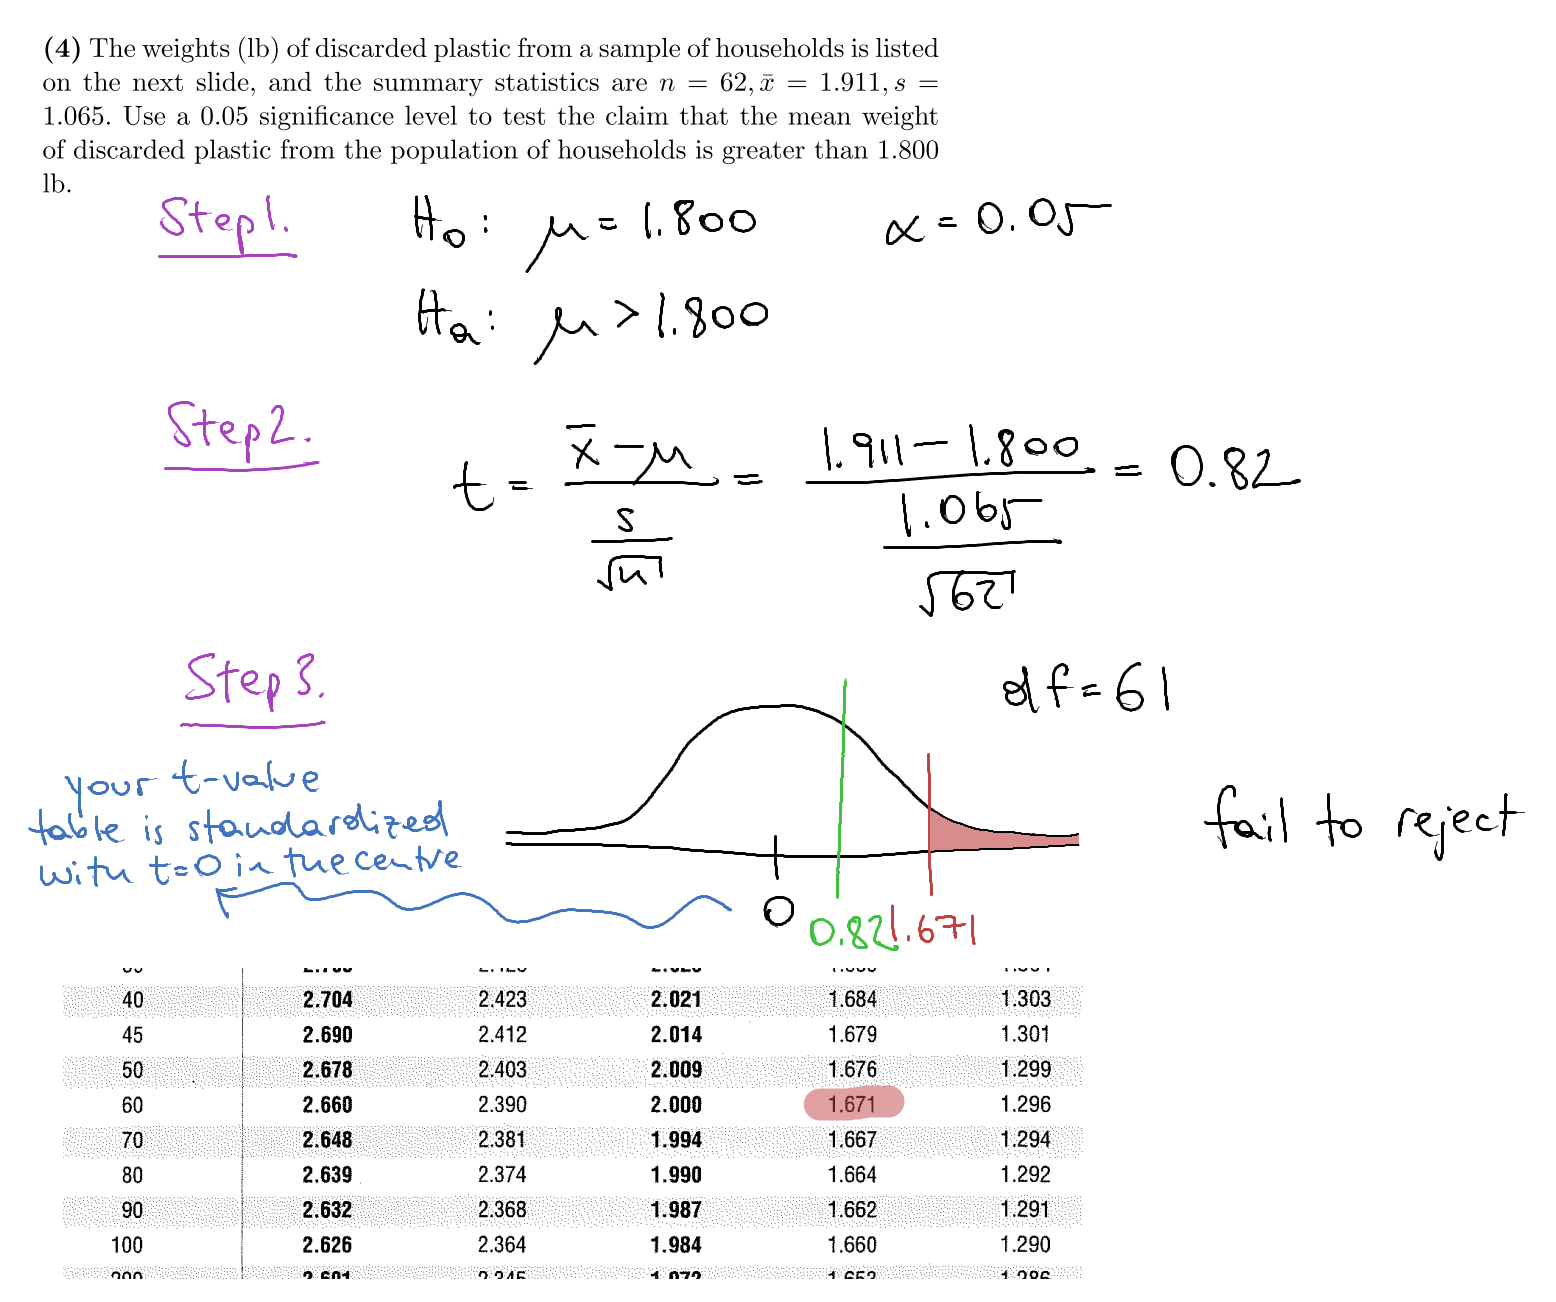 (4) The weights (lb) of discarded plastic from a sample of households is listed
on the next slide, and the summary statistics are n = 62, x̄ = 1.911, s =
1.065. Use a 0.05 significance level to test the claim that the mean weight
of discarded plastic from the population of households is greater than 1.800
lb.
Step1. H₀: μ = 1.800 α = 0.05
Hₐ: μ > 1.800
Step2. t = (x̄ - μ)/(s/√n) = (1.911 - 1.800)/(1.065/√62) = 0.82
Step3. df = 61
your t-value
table is standardized
with t=0 in the centre
fail to reject
0 0.82 1.671
40 2.704 2.423 2.021 1.684 1.303
45 2.690 2.412 2.014 1.679 1.301
50 2.678 2.403 2.009 1.676 1.299
60 2.660 2.390 2.000 1.671 1.296
70 2.648 2.381 1.994 1.667 1.294
80 2.639 2.374 1.990 1.664 1.292
90 2.632 2.368 1.987 1.662 1.291
100 2.626 2.364 1.984 1.660 1.290